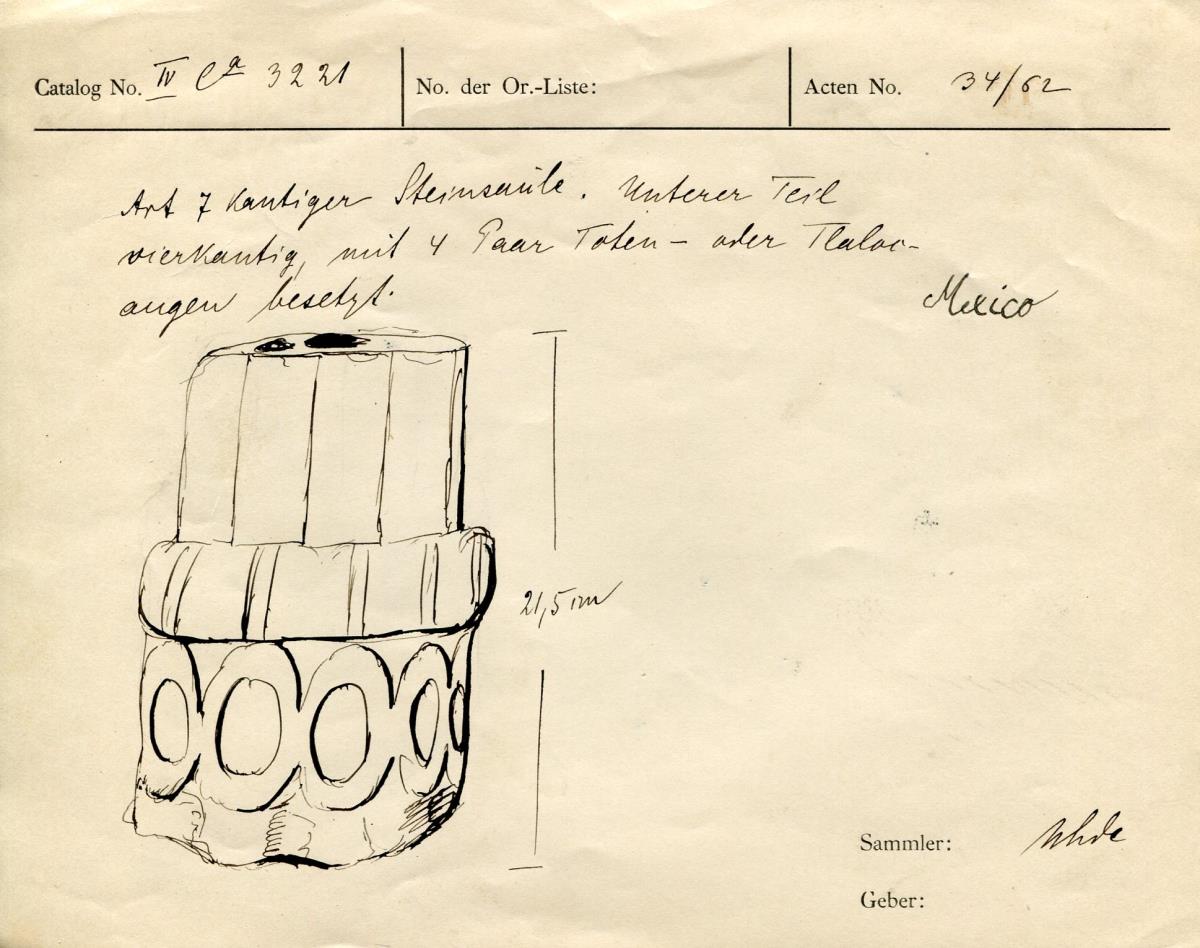 Catalog No. IV Ca 3221
No. der Or.-Liste:
Acten No. 34/62
Art 7 kantiger Steinsäule. Unterer Teil
vierkantig, mit 4 Paar Toten- oder Tlaloc-
augen besetzt.
Mexico
21,5 cm
Sammler: Uhde
Geber: